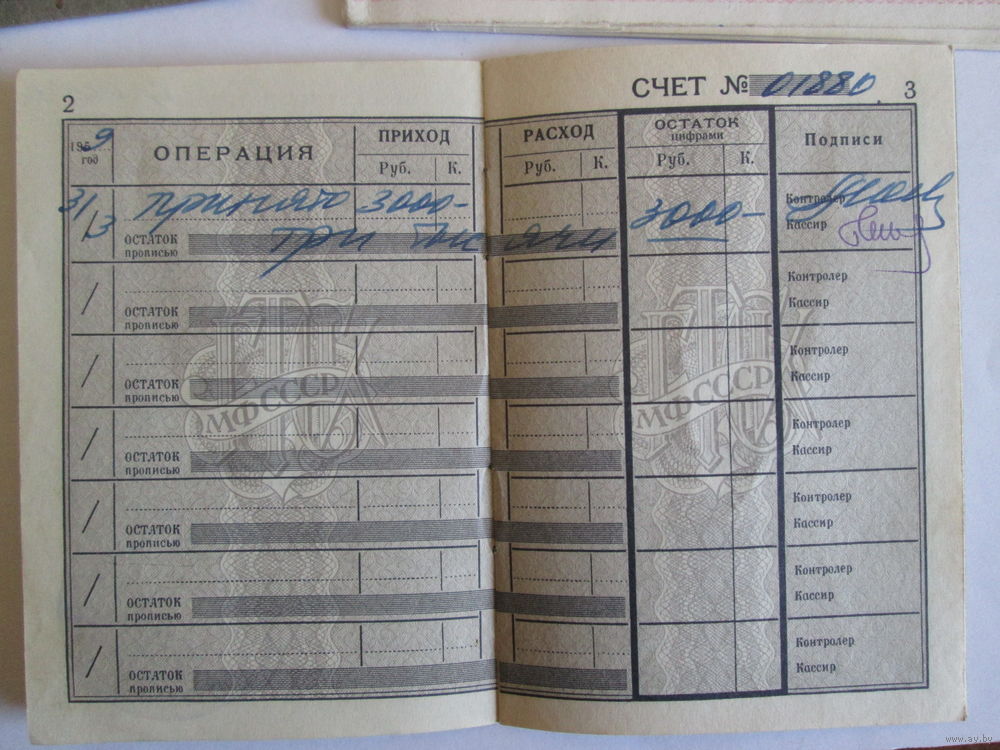 2
СЧЕТ № 01880 3
1959 год
ОПЕРАЦИЯ
ПРИХОД
Руб. К.
РАСХОД
Руб. К.
ОСТАТОК
цифрами
Руб. К.
Подписи
31/3 принято 3000- 3000- Контролер
ОСТАТОК прописью три тысячи Кассир
/ Контролер
ОСТАТОК прописью Кассир
/ Контролер
ОСТАТОК прописью Кассир
/ Контролер
ОСТАТОК прописью Кассир
/ Контролер
ОСТАТОК прописью Кассир
/ Контролер
ОСТАТОК прописью Кассир
/ Контролер
ОСТАТОК прописью Кассир
МФ СССР
МФ СССР
www.ay.by